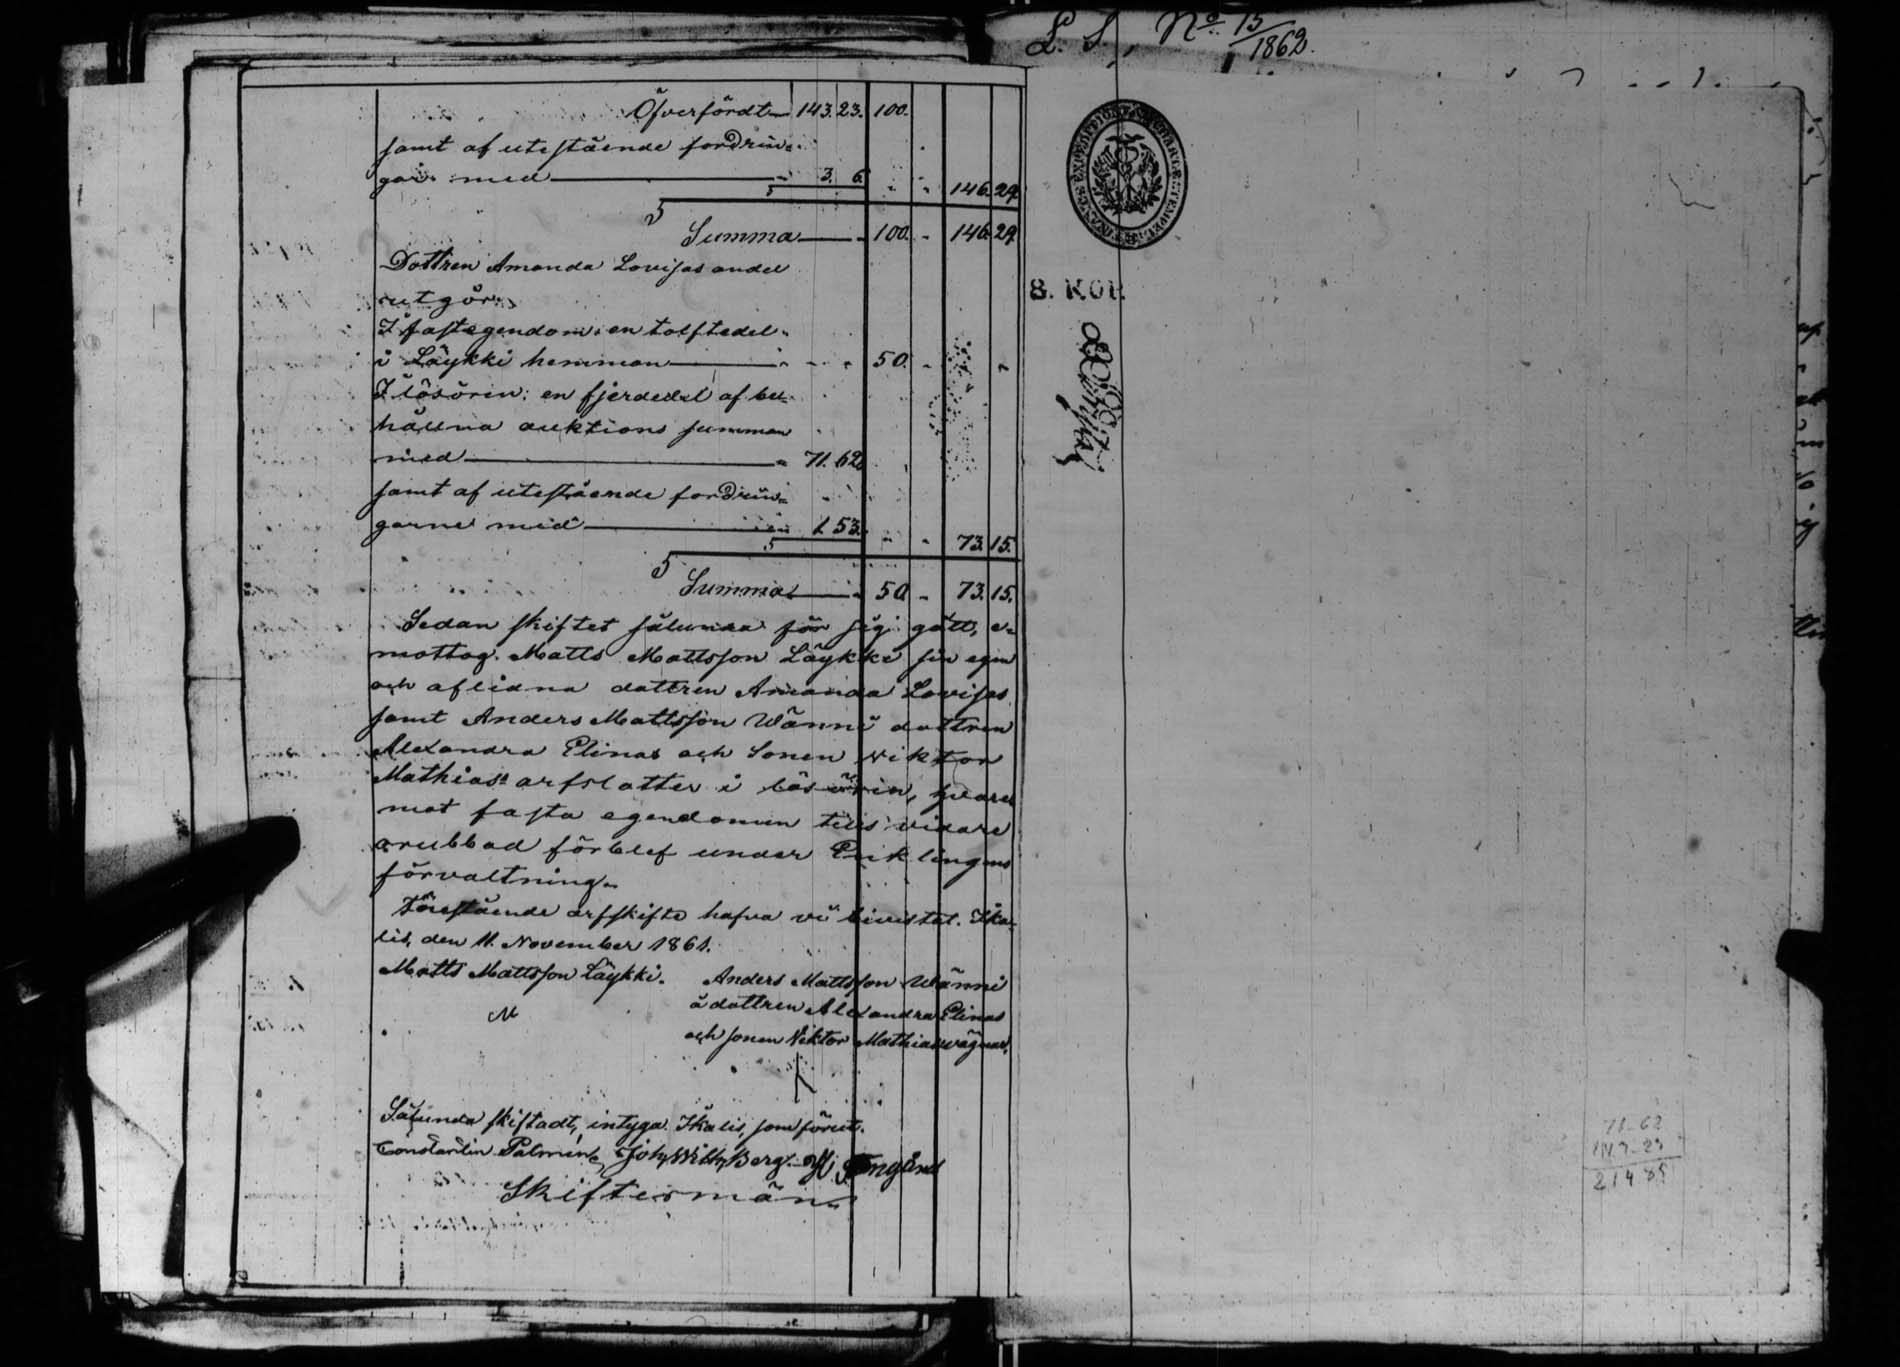 L. S., No 15/1862.
Öfverfördt 143.23. 100.
samt af utestående fordrin-
gar med 3. 6. 146.29.
Summa 100. 146.29
Dottren Amanda Lovisas andel
utgör:
I fastegendom: en tolftedel
i Läykki hemman 50.
I lösören: en fjerdedel af be-
hållna auktions summan
med 71.62
samt af utestående fordrin-
garne med 1.53. 73.15.
Summa 50. 73.15.
Sedan skiftet sålunda för sig gått, e-
mottog Matts Mattsson Läykki sin egen
och aflidna dottren Amanda Lovisas
samt Anders Mattsson Wänni dottren
Alexandra Elinas och Sonen Viktor
Mathias' arfslotter i lösören, hvare-
mot fasta egendomen tills vidare
orubbad förblef under Enklingens
förvaltning.
Förestående arfskifte hafva vi bivistat. Ika-
lis, den 11. November 1861.
Matts Mattsson Läykki. Anders Mattsson Wänni
M å dottren Alexandra Elinas
och sonen Viktor Mathias vägnar.
Sålunda skiftadt, intyga. Ikalis, som förut.
Constantin Palmén, Joh. Wilh. Berg.
Skiftesmän
8. KOP.
71-62
143-23
214 85